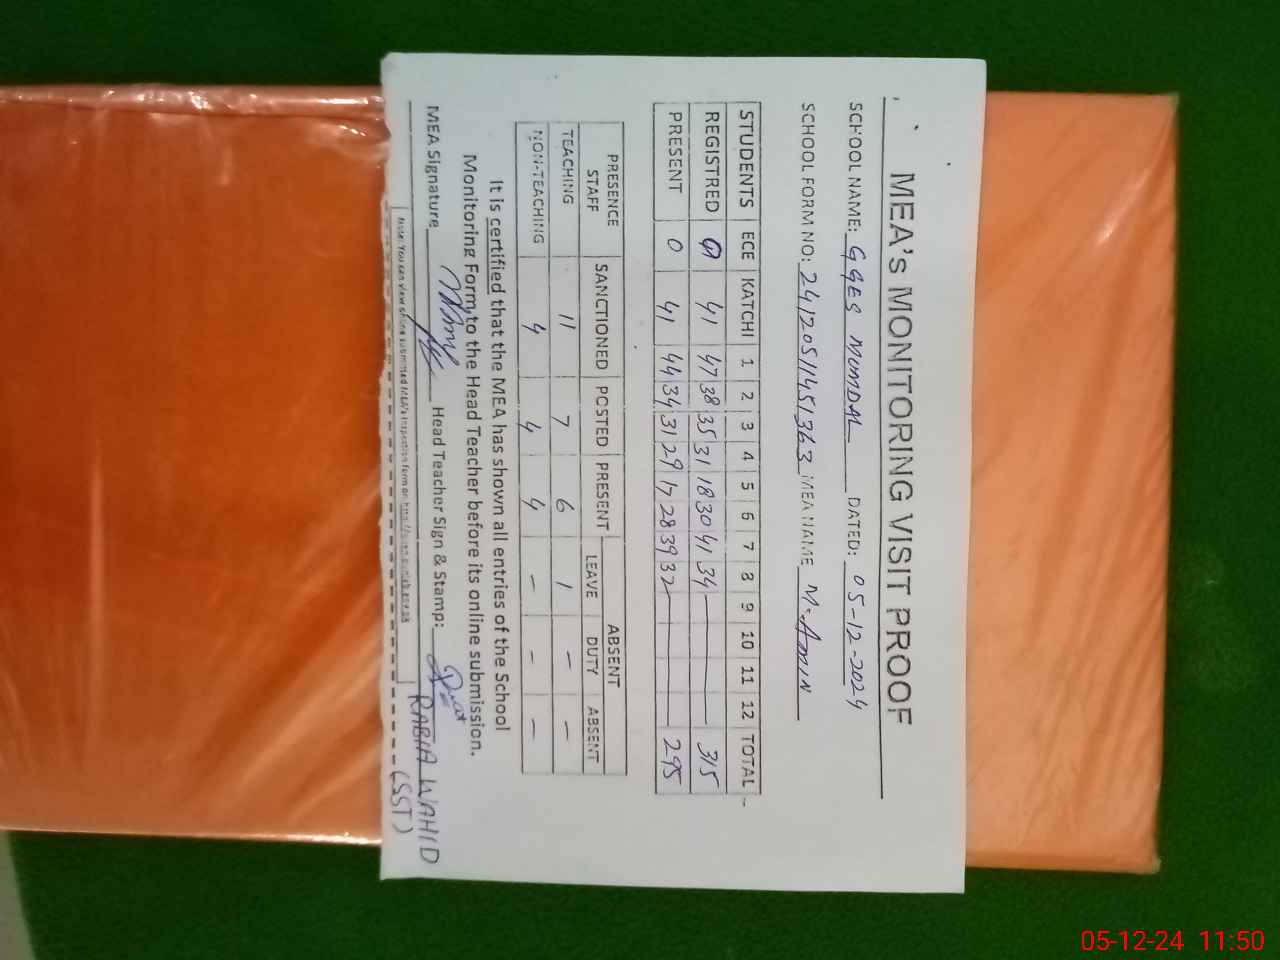 MEA's MONITORING VISIT PROOF
SCHOOL NAME: GGES MUMDAL DATED: 05-12-2024
SCHOOL FORM NO: 24120511451363 MEA NAME M. Amin
STUDENTS ECE KATCHI 1 2 3 4 5 6 7 8 9 10 11 12 TOTAL
REGISTRED 41 47 38 35 31 18 30 41 34 — 315
PRESENT 0 41 44 34 31 29 17 28 39 32 — 295
PRESENCE STAFF SANCTIONED POSTED PRESENT ABSENT
LEAVE DUTY ABSENT
TEACHING 11 7 6 1 – –
NON-TEACHING 4 4 4 – – –
It is certified that the MEA has shown all entries of the School
Monitoring Form to the Head Teacher before its online submission.
MEA Signature Head Teacher Sign & Stamp:
RABIA WAHID
(SST)
Note: You can view online submitted MEA's inspection form on
05-12-24 11:50